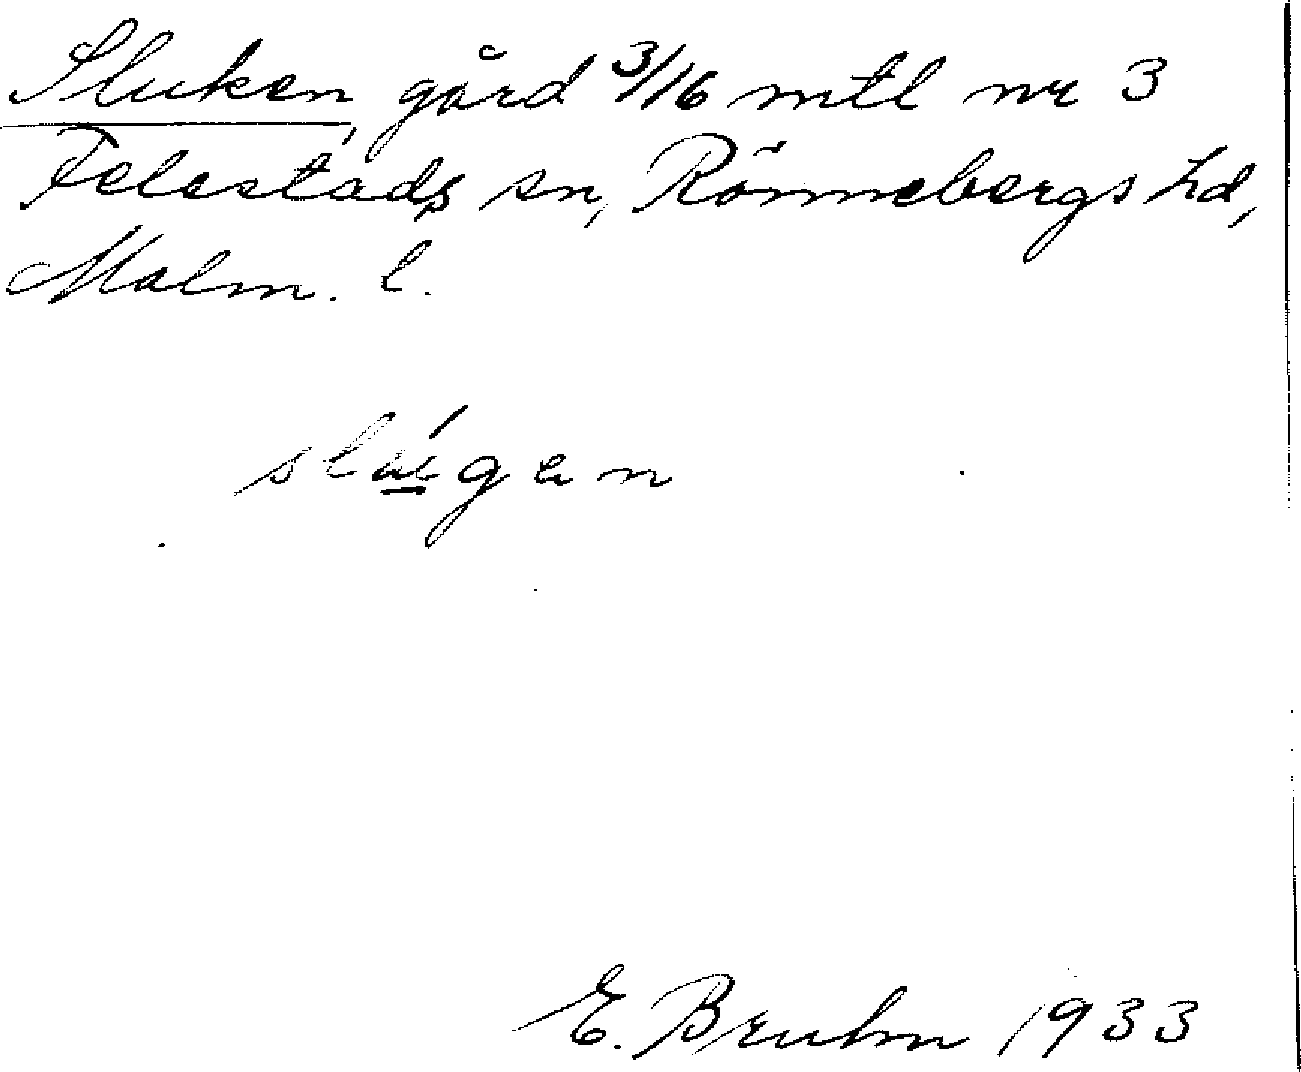 Sluken, gård 3/16 mtl nr 3
Felestads sn, Rönnebergs hd,
Malm. l.
slúgen
E. Bruhn 1933